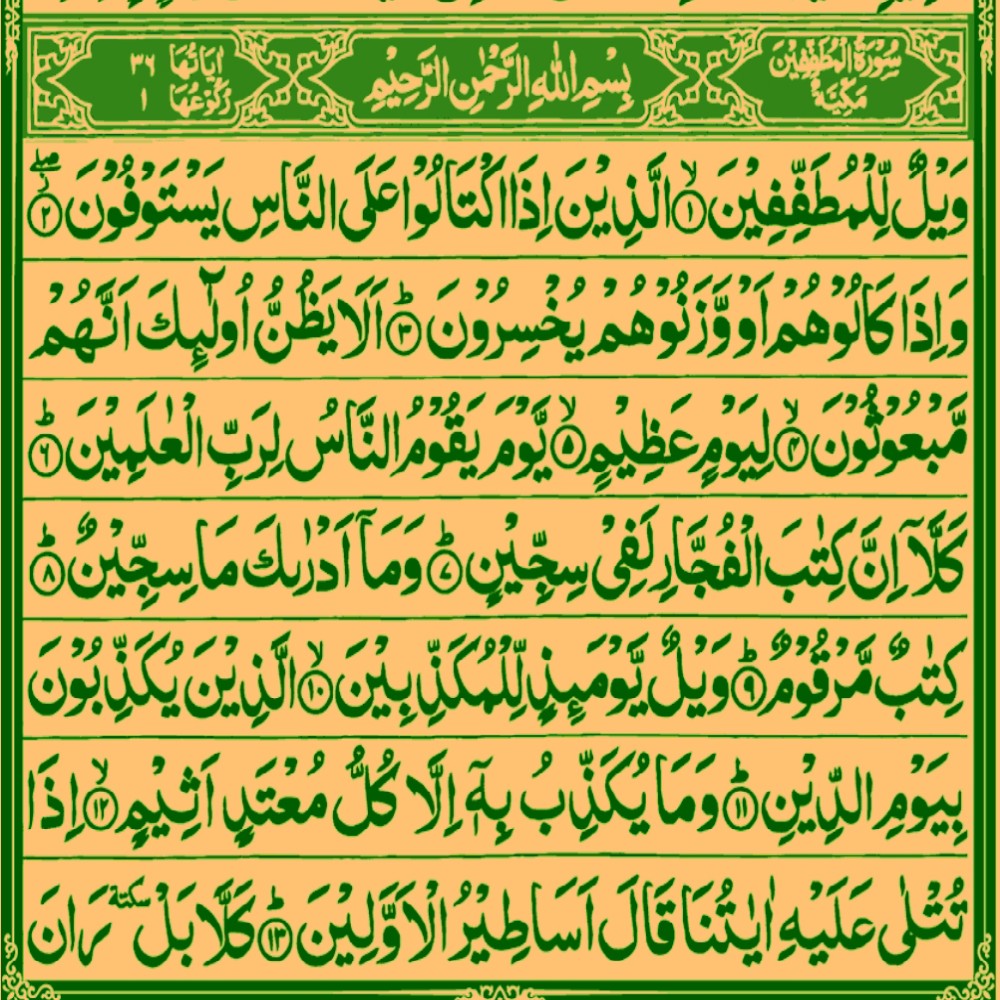 سُوْرَةُ الْمُطَفِّفِيْنَ مَكِّيَّةٌ بِسْمِ اللهِ الرَّحْمٰنِ الرَّحِيْمِ اٰيَاتُهَا ٣٦ رُكُوْعُهَا ١
وَيْلٌ لِّلْمُطَفِّفِيْنَ ۙ﴿١﴾ الَّذِيْنَ اِذَا اكْتَالُوْا عَلَى النَّاسِ يَسْتَوْفُوْنَ ۖ﴿٢﴾
وَاِذَا كَالُوْهُمْ اَوْ وَّزَنُوْهُمْ يُخْسِرُوْنَ ؕ﴿٣﴾ اَلَا يَظُنُّ اُولٰٓئِكَ اَنَّهُمْ
مَّبْعُوْثُوْنَ ۙ﴿٤﴾ لِيَوْمٍ عَظِيْمٍ ۙ﴿٥﴾ يَّوْمَ يَقُوْمُ النَّاسُ لِرَبِّ الْعٰلَمِيْنَ ؕ﴿٦﴾
كَلَّاۤ اِنَّ كِتٰبَ الْفُجَّارِ لَفِيْ سِجِّيْنٍ ؕ﴿٧﴾ وَمَاۤ اَدْرٰىكَ مَا سِجِّيْنٌ ؕ﴿٨﴾
كِتٰبٌ مَّرْقُوْمٌ ؕ﴿٩﴾ وَيْلٌ يَّوْمَئِذٍ لِّلْمُكَذِّبِيْنَ ۙ﴿١٠﴾ الَّذِيْنَ يُكَذِّبُوْنَ
بِيَوْمِ الدِّيْنِ ؕ﴿١١﴾ وَمَا يُكَذِّبُ بِهٖۤ اِلَّا كُلُّ مُعْتَدٍ اَثِيْمٍ ۙ﴿١٢﴾ اِذَا
تُتْلٰى عَلَيْهِ اٰيٰتُنَا قَالَ اَسَاطِيْرُ الْاَوَّلِيْنَ ؕ﴿١٣﴾ كَلَّا بَلْ سكتة رَانَ